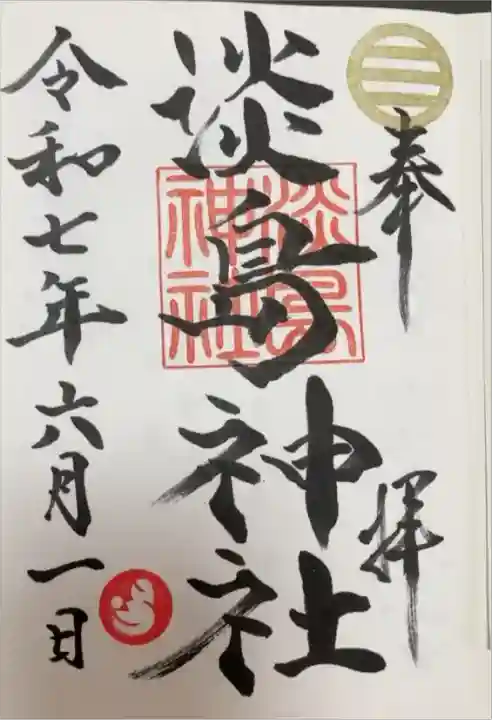 奉拝
淡島神社
淡島神社
令和七年六月一日